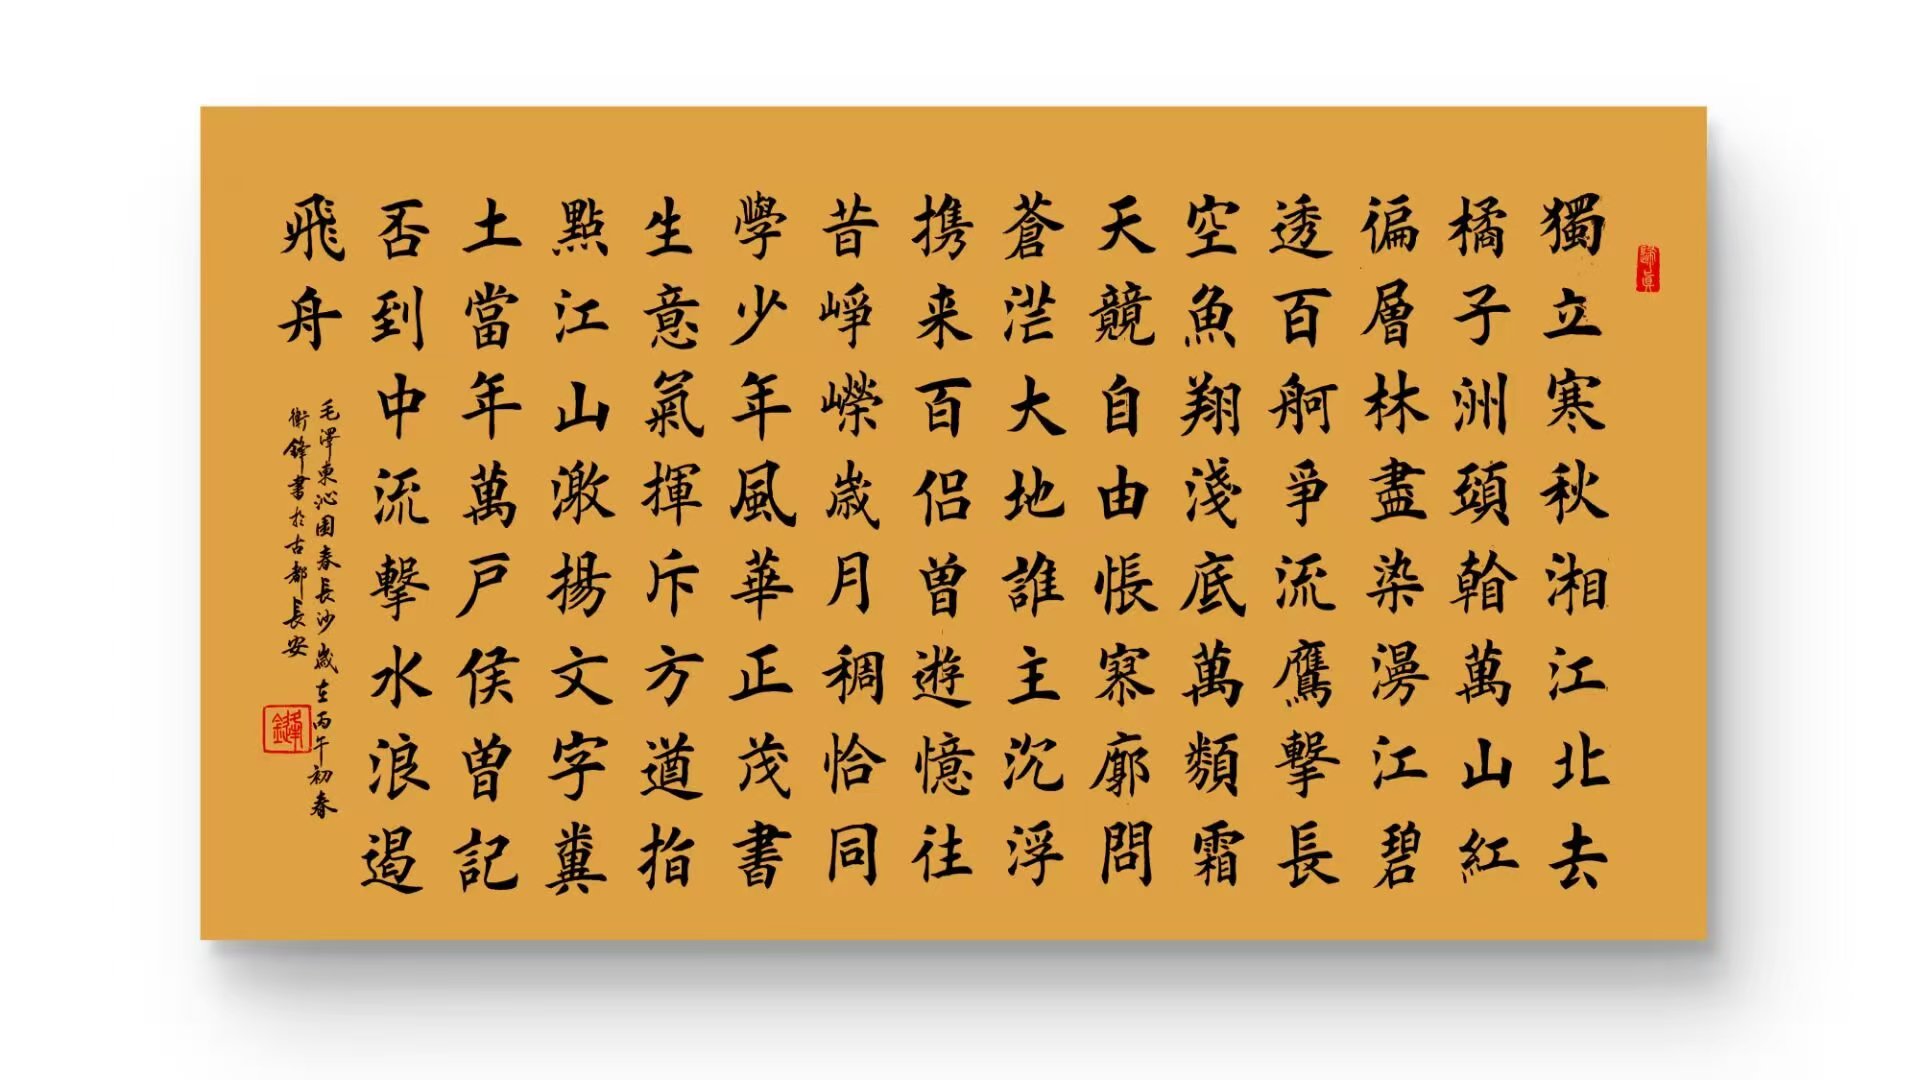 獨立寒秋湘江北去
橘子洲頭看萬山紅
徧層林盡染漫江碧
透百舸爭流鷹擊長
空魚翔淺底萬類霜
天競自由悵寥廓問
蒼茫大地誰主沉浮
携来百侣曾遊憶往
昔崢嶸歲月稠恰同
學少年風華正茂書
生意氣揮斥方遒指
點江山激揚文字糞
土當年萬戶侯曾記
否到中流擊水浪遏
飛舟
毛澤東沁園春長沙歲在丙午初春
衛鋒書於古都長安